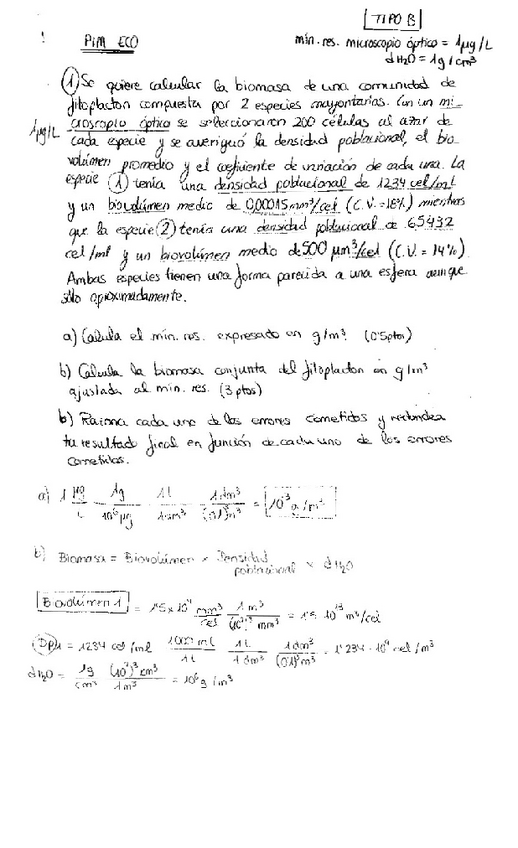 TIPO B
PIM ECO
mín. res. microscopio óptico = 1µg/L
dH2O = 1g/cm³
1) Se quiere calcular la biomasa de una comunidad de
fitoplacton compuesta por 2 especies mayoritarias. Con un mi-
croscopio óptico se seleccionaron 200 células al azar de
1µg/L
cada especie y se averiguó la densidad poblacional, el bio-
volúmen promedio y el coeficiente de variación de cada una. La
especie 1) tenía una densidad poblacional de 1234 cel/ml
y un biovolúmen medio de 0,00015mm³/cel (C.V.=18%) mientras
que la especie 2) tenía una densidad poblacional de 65432
cel/ml y un biovolúmen medio de 500 µm³/cel (C.V.=14%).
Ambas especies tienen una forma parecida a una esfera aunque
sólo aproximadamente.
a) Calcula el mín. res. expresado en g/m³. (0'5ptos)
b) Calcula la biomasa conjunta del fitoplacton en g/m³
ajustada al mín. res. (3 ptos)
b) Razona cada uno de los errores cometidos y redondea
tu resultado final en función de cada uno de los errores
cometidos.
a) 1 µg/L · 1g/10⁶µg · 1L/1dm³ · 1dm³/(0'1)³m³ = 10⁻³ g/m³
b) Biomasa = Biovolúmen × Densidad poblacional × dH2O
Biovolúmen 1 = 1'5×10⁻⁴ mm³/cel · 1m³/(10³)³mm³ = 1'5·10⁻¹³ m³/cel
Dp1 = 1234 cel/ml · 1000 ml/1L · 1L/1dm³ · 1dm³/(0'1)³m³ = 1'234·10⁹ cel/m³
dH2O = 1g/cm³ · (10²)³cm³/1m³ = 10⁶g/m³